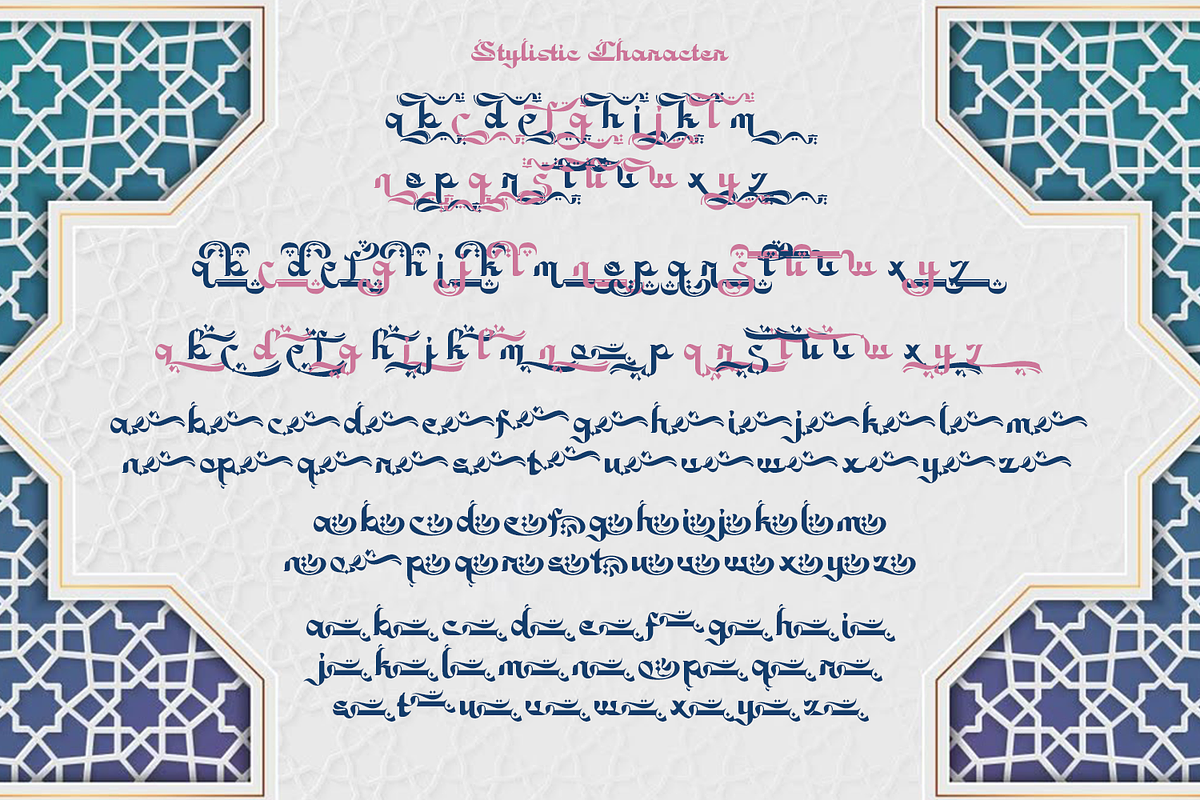 Stylistic Character
a b c d e f g h i j k l m
n o p q r s t u v w x y z
a b c d e f g h i j k l m n o p q r s t u v w x y z
a b c d e f g h i j k l m n o p q r s t u v w x y z
a b c d e f g h i j k l m
n o p q r s t u v w x y z
a b c d e f g h i j k l m
n o p q r s t u v w x y z
a b c d e f g h i
j k l m n o p q r
s t u v w x y z